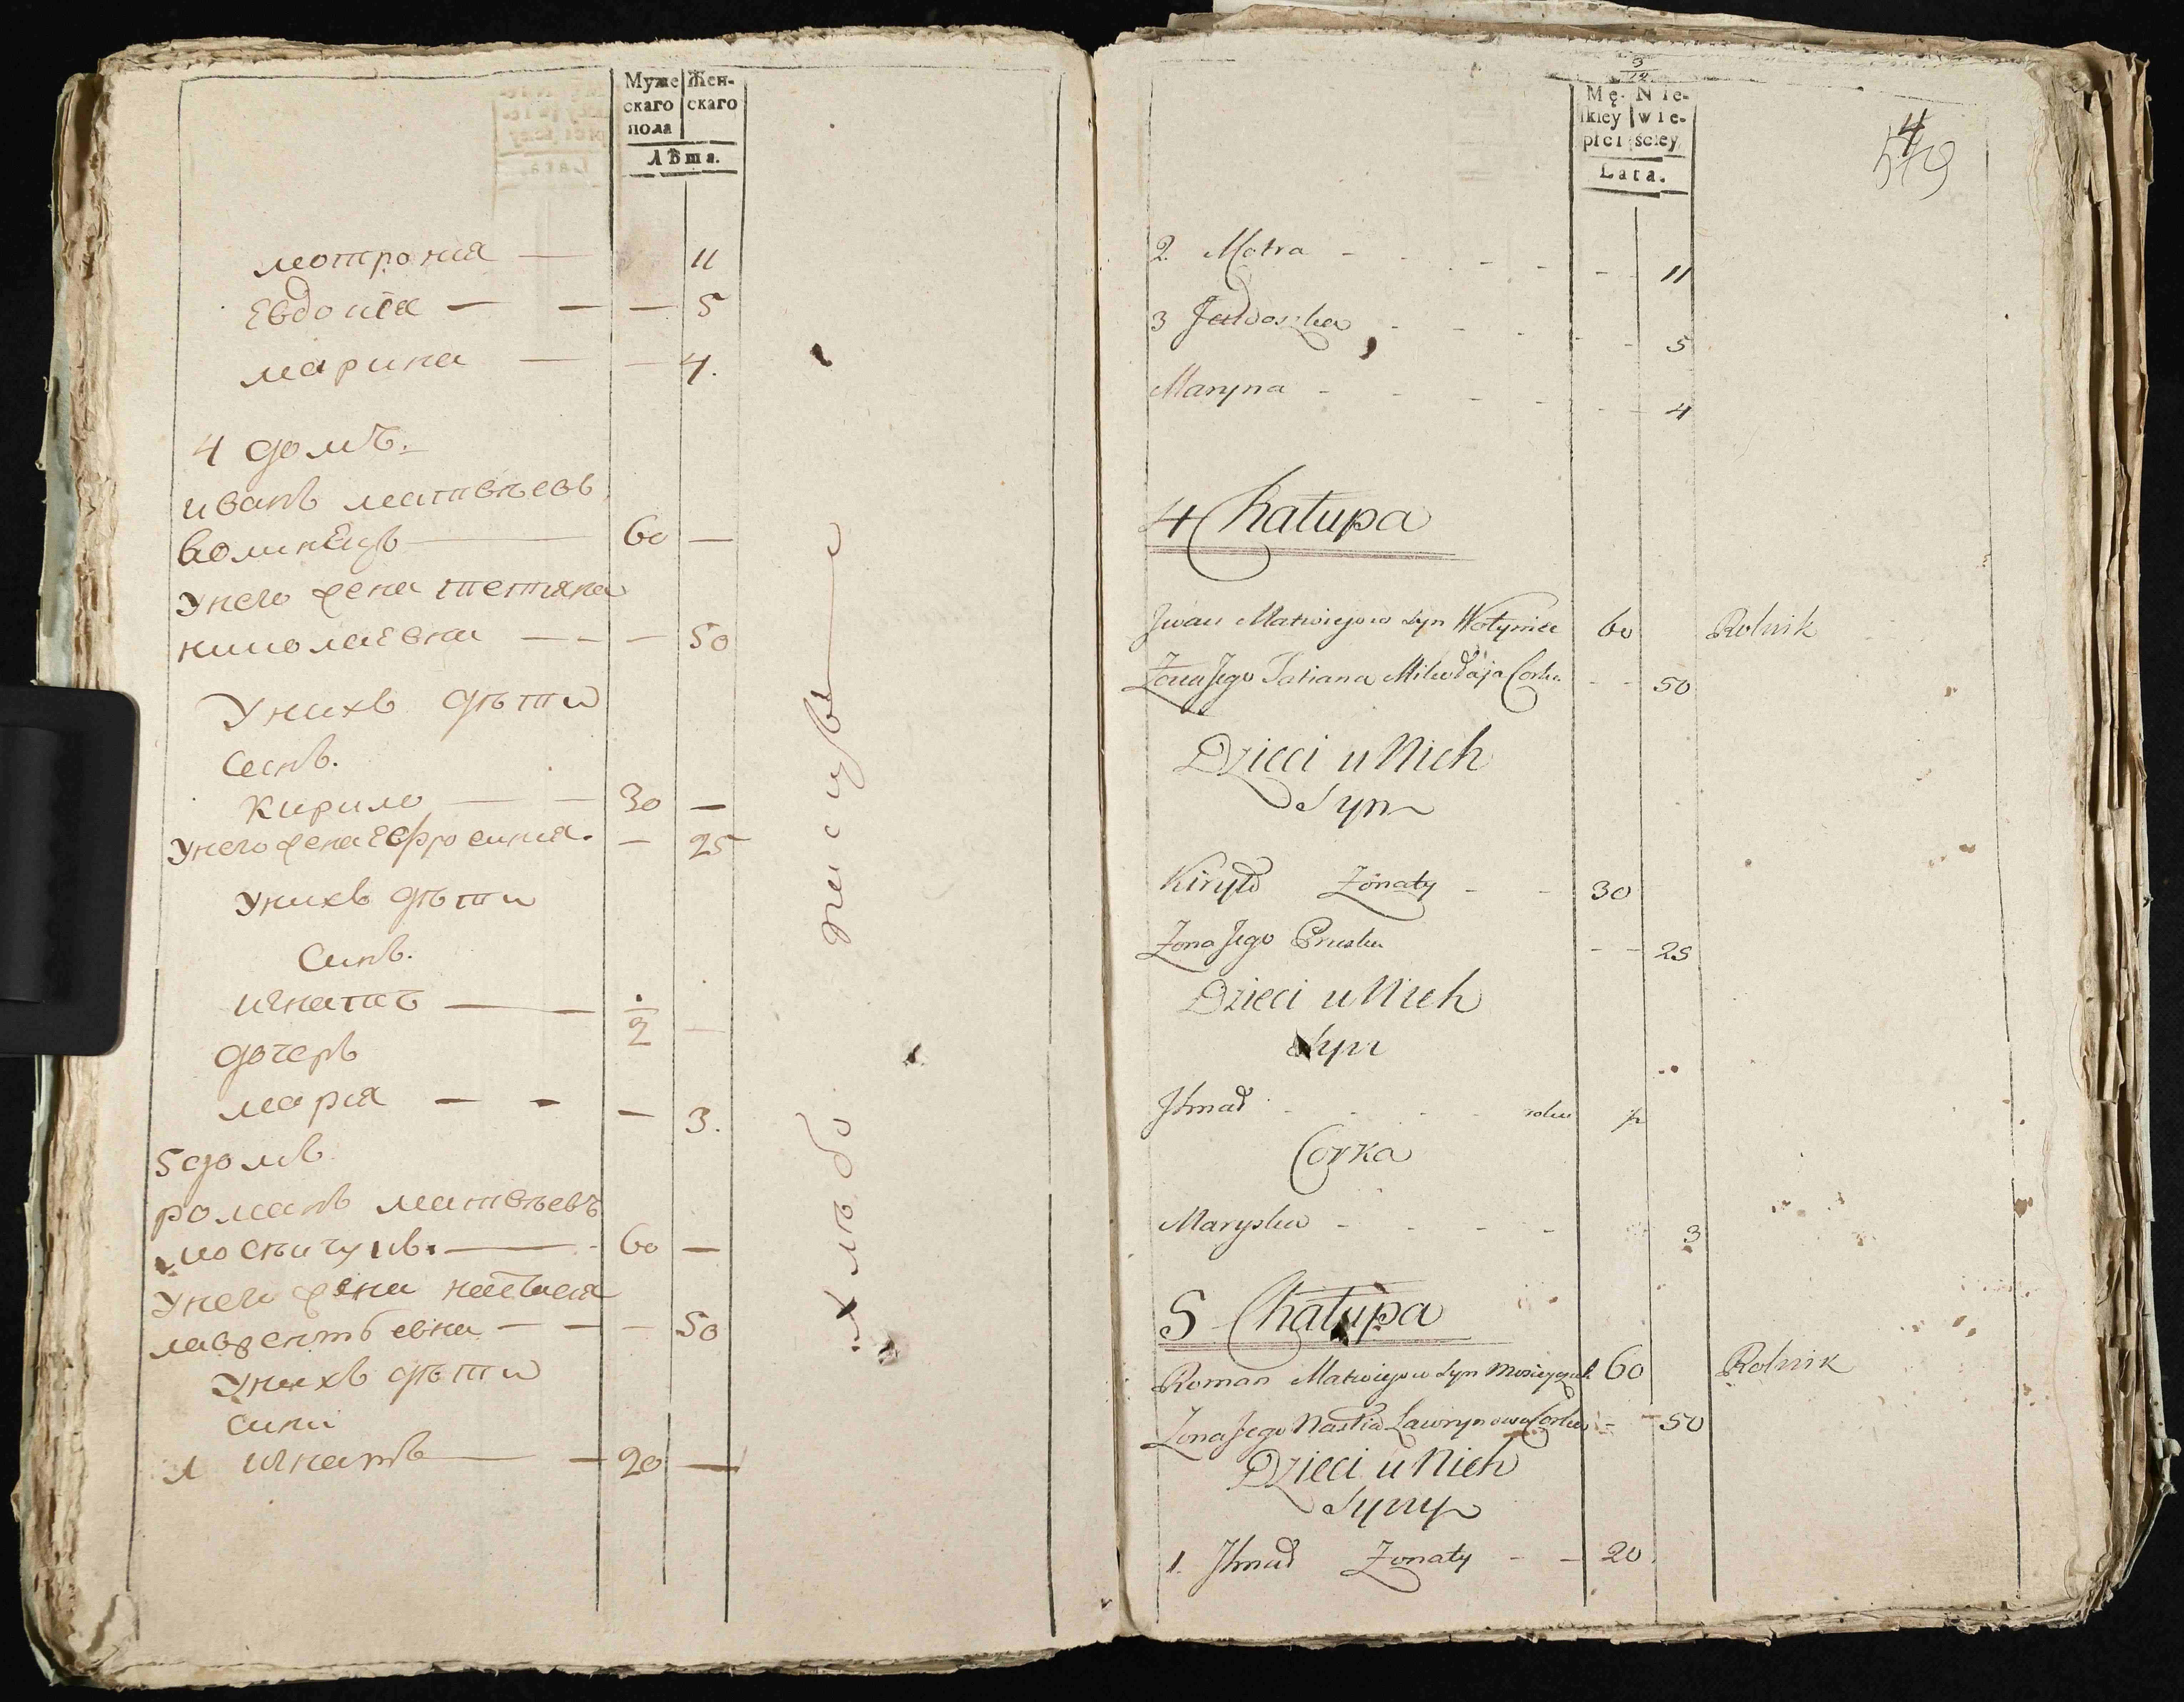 Муже скаго пола
Жен- скаго
Лѣта.
мотрония — 11
Евдокїя — — — 5
марина — — 4.
4 домъ.
иванъ матвѣевъ
волинецъ — 60 —
У него жена тетяна
николаевна — — — 50
У нихъ дѣти
синъ.
кирило — — 30 —
У него жена Ефросиния. — 25
У нихъ дѣти
Синъ.
игнатъ — — 1/2 —
дочеръ
мария — - — 3.
5 домъ
романъ матвѣевъ
60 —
У него жена настасия
лаврентьевна — — — 50
У нихъ дѣти
сини
1 игнатъ — — 20 —
хлѣбо пасцы
3/12
Mę- skiey płci
Nie- wie- ściey
Lata.
4
579
2. Motra - - - - - 11
3 Jewdoszka - - - - - 5
Maryna - - - - - 4
4 Chałupa
Jwan Matwiejow Syn Wołyniec 60 Rolnik
Zona Jego Tatiana Mikołaja Corka - - 50
Dzieci u Nich
Syn
Kiryło Zonaty - - 30
Zona Jego Pruska - - 25
Dzieci u Nich
Syn
Jhnad - - - - roku 1/2
Corka
Maryska - - - - 3
5 Chałupa
Roman Matwiejow Syn 60 Rolnik
Zona Jego Nastia Lawrynowa Corka - - 50
Dzieci u Nich
Syny
1. Jhnad Zonaty - - 20